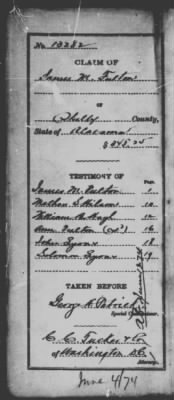 No. 13282
CLAIM OF
James M. Fulton
OF
Shelby County,
State of Alabama
$ 848.25
TESTIMONY OF
Page.
James M. Fulton 1
Nathan G. Wilson 10
William 12
Ann Fulton (col'd) 16
John Lyon 18
Solomon Lyon 19
TAKEN BEFORE
George H. Patrick
Special
C. C. Tucker & Co
of Washington D.C.
Attorney.
June 4/74